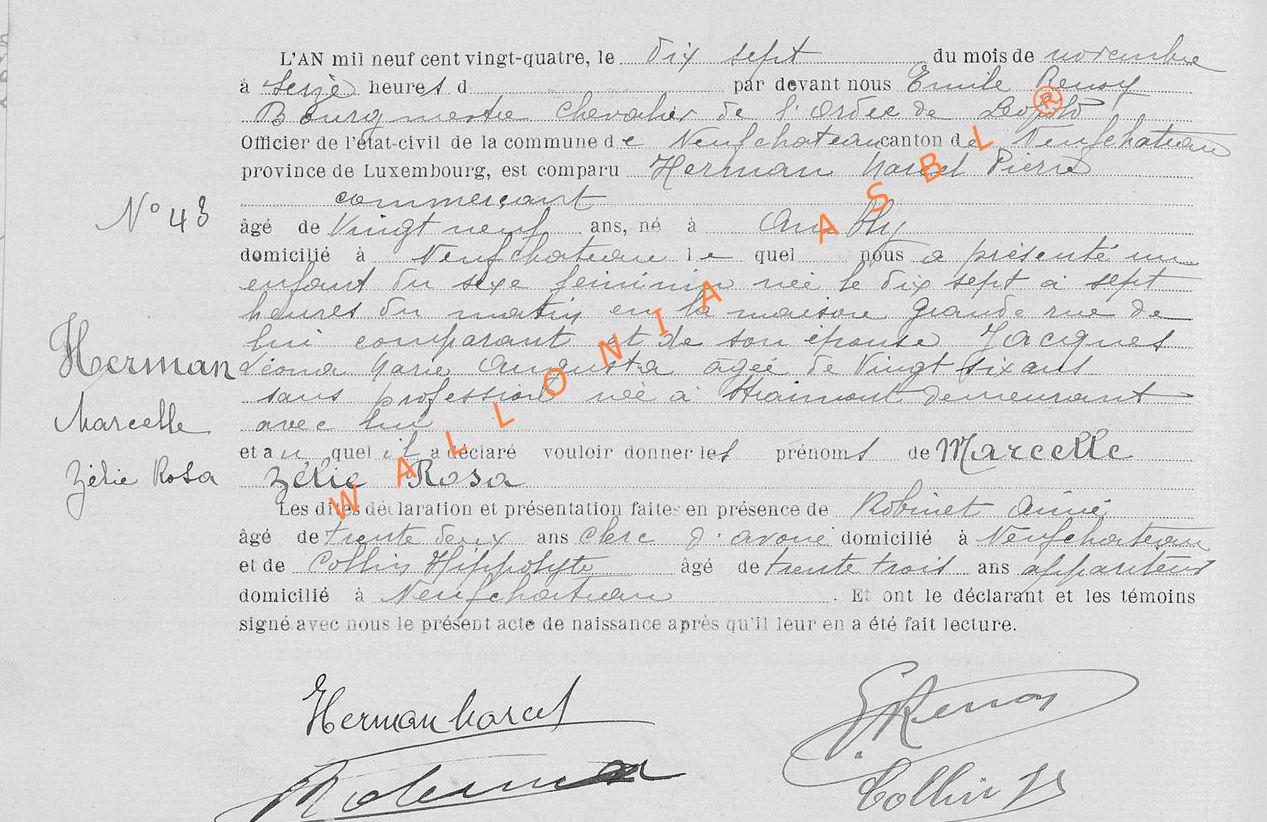 L'AN mil neuf cent vingt-quatre, le dix sept du mois de novembre
à seize heures d par devant nous Emile Renoy
Bourgmestre Chevalier de l'Ordre de Léopold
Officier de l'état-civil de la commune de Neufchateau canton de Neufchateau
province de Luxembourg, est comparu Herman Marcel Pierre
commerçant
N° 43
âgé de Vingt neuf ans, né à Ambly
domicilié à Neufchateau le quel nous a présenté un
enfant du sexe féminin née le dix sept à sept
heures du matin en la maison Grande rue de
lui comparant et de son épouse Jacques
Herman
Léona Marie Augusta agée de Vingt six ans
sans profession née à demeurant
Marcelle
avec lui
et au quel il a déclaré vouloir donner les prénoms de Marcelle
Zélie Rosa
Zélie Rosa
Les dites déclaration et présentation faites en présence de Robinet Aimé
âgé de trente deux ans clerc d'avoué domicilié à Neufchateau
et de Collin Hippolyte âgé de trente trois ans appariteur
domicilié à Neufchateau . Et ont le déclarant et les témoins
signé avec nous le présent acte de naissance après qu'il leur en a été fait lecture.
Herman Marcel
E Renoy
Collin H
WALLONIA ASBL ®